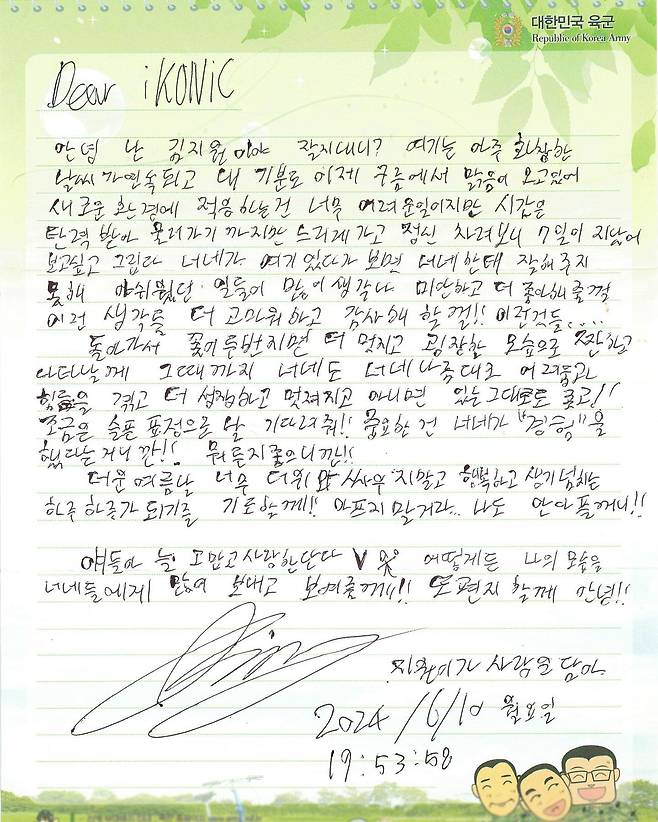 대한민국 육군
Republic of Korea Army
Dear iKONIC
안녕 난 김지원이야 잘지내니? 여기는 아주 화창한
날씨가 연속되고 내 기분도 이제 구름에서 맑음이 오고있어
새로운 환경에 적응하는건 너무 어려운일이지만 시간은
탄력 받아 올라가기 까지만 느리게가고 정신 차려보니 7일이 지났어
보고싶고 그립다 너네가 여기있다가 보면 너네한테 잘해주지
못해 아쉬웠던 일들이 많이 생각나 미안하고 더 좋아해줄껄
이런 생각들 더 고마워하고 감사해 할껄!! 이런것들....
돌아가서 꽃이 두번지면 더 멋지고 굉장할 모습으로 짠하고
나타날게 그때까지 너네도 너네 나름대로 어려움과
힘듦을 겪고 더 성장하고 멋져지고 아니면 있는그대로도 좋고!!
조금은 슬픈 표정으로 날 기다려줘!! 중요한 건 너네가 "경험"을
했다는거니깐!! 뭐든지좋으니깐!!
더운여름날 너무 더위와 싸우지말고 행복하고 생기넘치는
하루하루가 되기를 기도할게!! 아프지말거라.. 나도 안아플께니!!
얘들아 늘 고맙고사랑한단다 V 어떻게든 나의 모습을
너네들에게 많이 보내고 보여줄께!!! 또편지할게 안녕!!
지원이가 사랑을 담아
2024/6/10 월요일
19:53:58